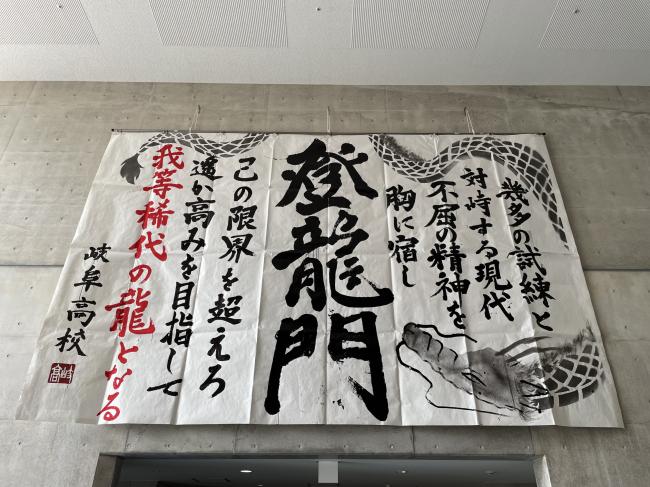 幾多の試練と
対峙する現代
不屈の精神を
胸に宿し
登龍門
己の限界を超えろ
遥か高みを目指して
我等稀代の龍となる
岐阜高校
岐高